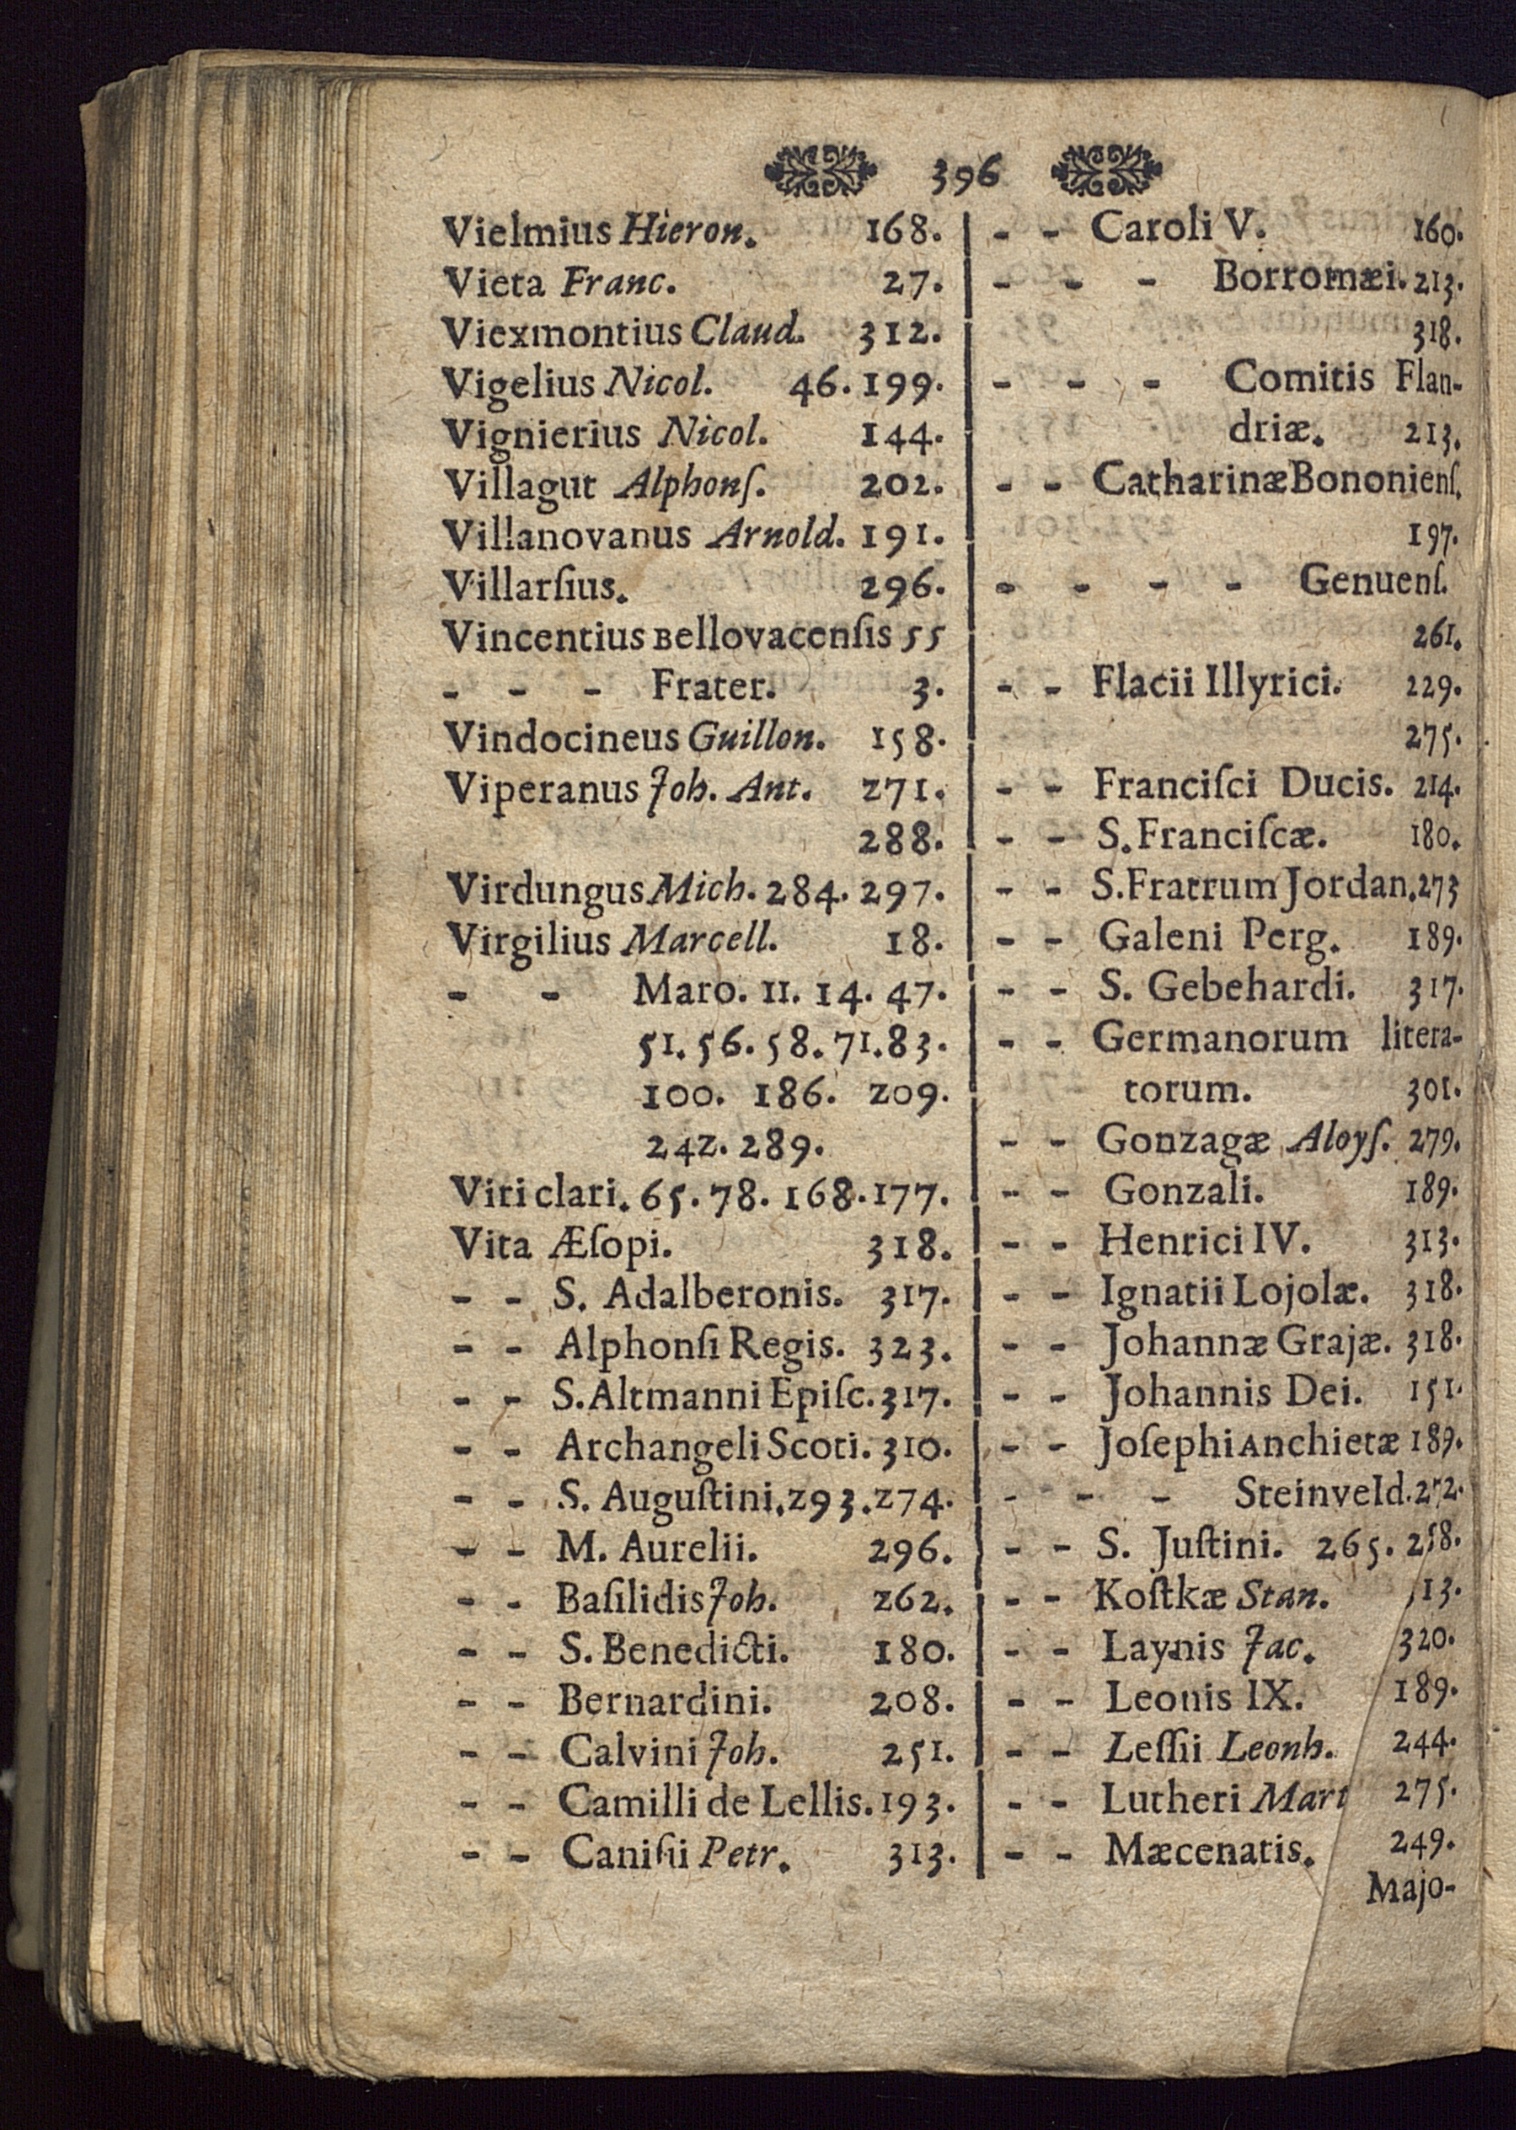 396
Vielmius Hieron. 168.
Vieta Franc. 27.
Viexmontius Claud. 312.
Vigelius Nicol. 46. 199.
Vignierius Nicol. 144.
Villagut Alphonſ. 202.
Villanovanus Arnold. 191.
Villarſius. 296.
Vincentius Bellovacenſis 55
- - - Frater. 3.
Vindocineus Guillon. 158.
Viperanus Joh. Ant. 271.
288.
Virdungus Mich. 284. 297.
Virgilius Marcell. 18.
- - Maro. 11. 14. 47.
51. 56. 58. 71. 83.
100. 186. 209.
242. 289.
Viri clari. 65. 78. 168. 177.
Vita Æſopi. 318.
- - S. Adalberonis. 317.
- - Alphonſi Regis. 323.
- - S. Altmanni Epiſc. 317.
- - Archangeli Scoti. 310.
- - S. Auguſtini. 293. 274.
- - M. Aurelii. 296.
- - Baſilidis Joh. 262.
- - S. Benedicti. 180.
- - Bernardini. 208.
- - Calvini Joh. 251.
- - Camilli de Lellis. 193.
- - Caniſii Petr. 313.
- - Caroli V. 160.
- - - Borromæi. 213.
318.
- - - Comitis Flan-
driæ. 213.
- - Catharinæ Bononienſ.
197.
- - - - Genuenſ.
261.
- - Flacii Illyrici. 229.
275.
- - Franciſci Ducis. 214.
- - S. Franciſcæ. 180.
- - S. Fratrum Jordan. 273
- - Galeni Perg. 189.
- - S. Gebehardi. 317.
- - Germanorum litera-
torum. 301.
- - Gonzagæ Aloyſ. 279.
- - Gonzali. 189.
- - Henrici IV. 313.
- - Ignatii Lojolæ. 318.
- - Johannæ Grajæ. 318.
- - Johannis Dei. 151.
- - Joſephi Anchietæ 189.
- - - Steinveld. 272.
- - S. Juſtini. 265. 258.
- - Koſtkæ Stan.
- - Laynis Jac. 320.
- - Leonis IX. 189.
- - Leſſii Leonh. 244.
- - Lutheri Mart 275.
- - Mæcenatis. 249.
Majo-